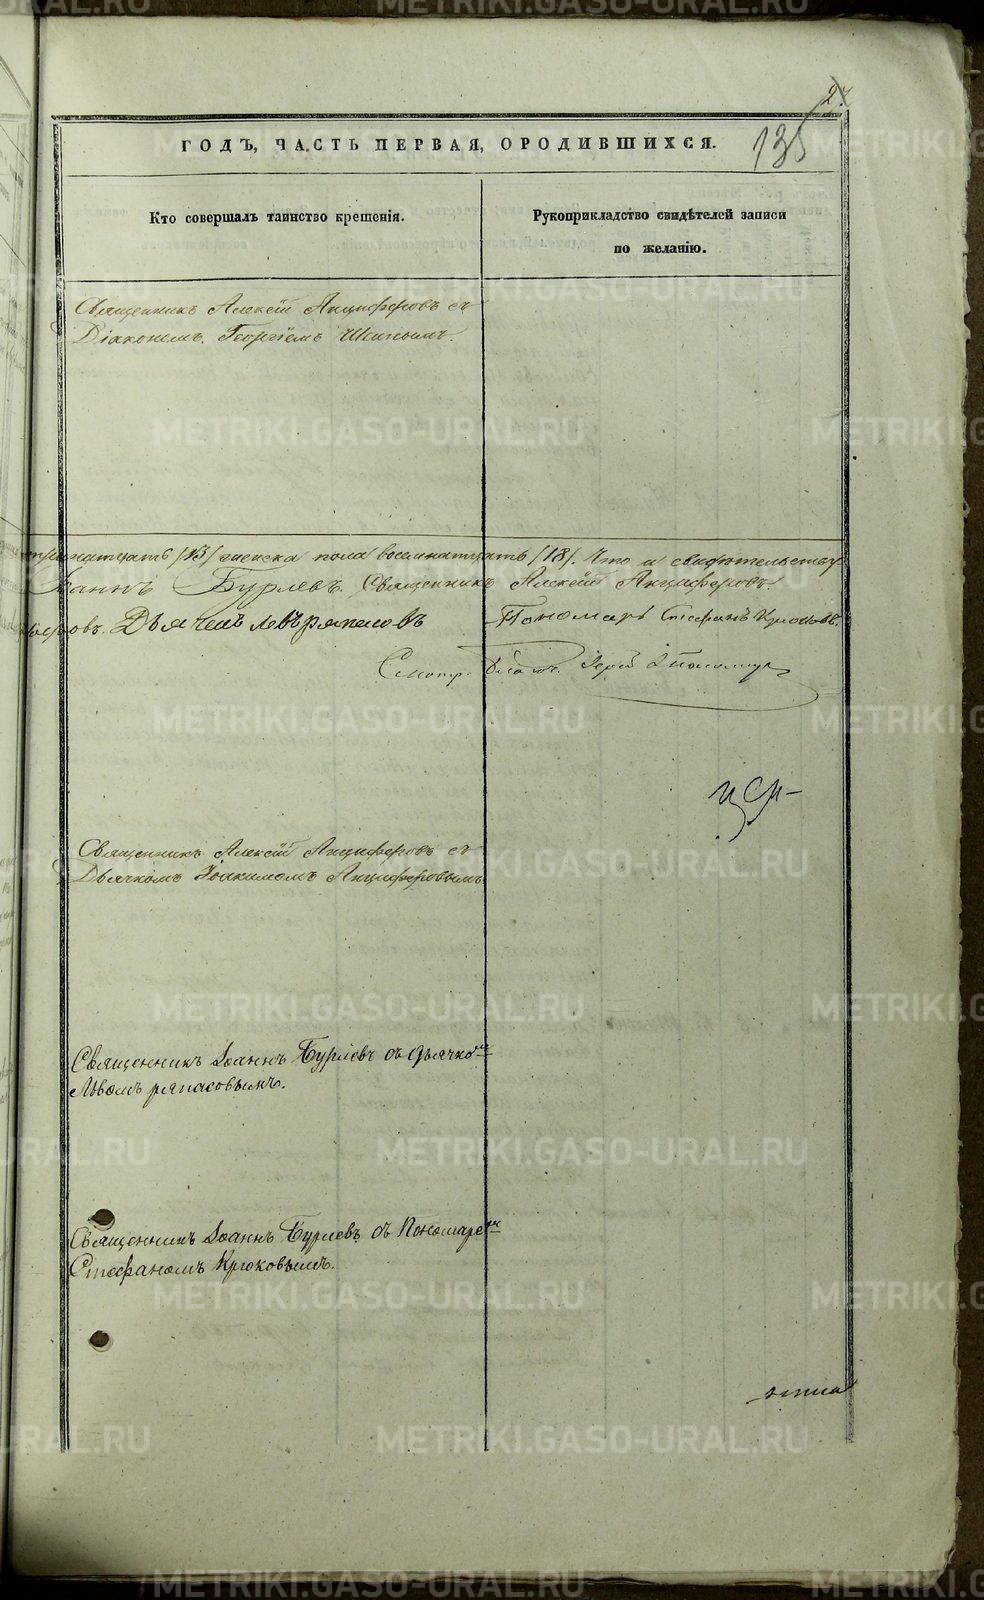 24
ГОДЪ, ЧАСТЬ ПЕРВАЯ, О РОДИВШИХСЯ.
135
Кто совершалъ таинство крещенія.
Рукоприкладство свидѣтелей записи
по желанію.
Священникъ Алексій Анциферовъ съ
Діакономъ Георгіемъ
/13/ женска пола восемнатцать /18/. Что и свидѣтельству
Іоаннъ Бурлевъ. Священникъ Алексій Анциферовъ
Дьячекъ Левъ ряпасовъ Пономарь Стефанъ Крюковъ.
Смотр. Іерей
Священникъ Алексій Анциферовъ съ
Дьячкомъ Іоакимомъ Анциферовымъ
Священникъ Іоаннъ Бурлевъ съ дьячкомъ
Львомъ ряпасовымъ.
Священникъ Іоаннъ Бурлевъ съ Пономаремъ
Стефаномъ Крюковымъ.
METRIKI.GASO-URAL.RU